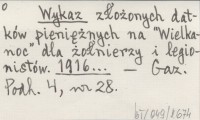 Wykaz złożonych dat-
ków pieniężnych na "Wielka-
noc" dla żołnierzy i legio-
nistów. 1916... — Gaz.
Podh. 4, nr 28.
bj/049/8674